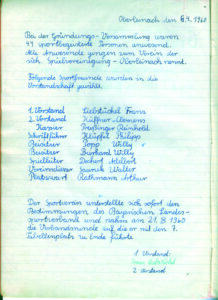 Oberleinach den 6.4.1960
Bei der Gründungs-Versammlung waren
49 sportbegeisterte Personen anwesend.
Alle Anwesende gingen zum Verein der
sich Spielvereinigung - Oberleinach nennt.
Folgende Sportfreunde wurden in die
Vorstandschaft gewählt.
1 Vorstand Franz
2 Vorstand Küffner Clemens
Kassier Reinhold
Schriftführer Philipp
Beisitzer Popp Willy
Beisitzer Burkard Willy
Spielleiter
Willi
Platzwart Rathmann Arthur
Der Sportverein unterstellte sich sofort den
Bestimmungen des Bayrischen Landes-
sportverband und nahm am 21.8.1960
die Verbandsrunde auf die er mit den 7.
Tabellenplatz zu Ende führte.
1 Vorstand:
2 Vorstand